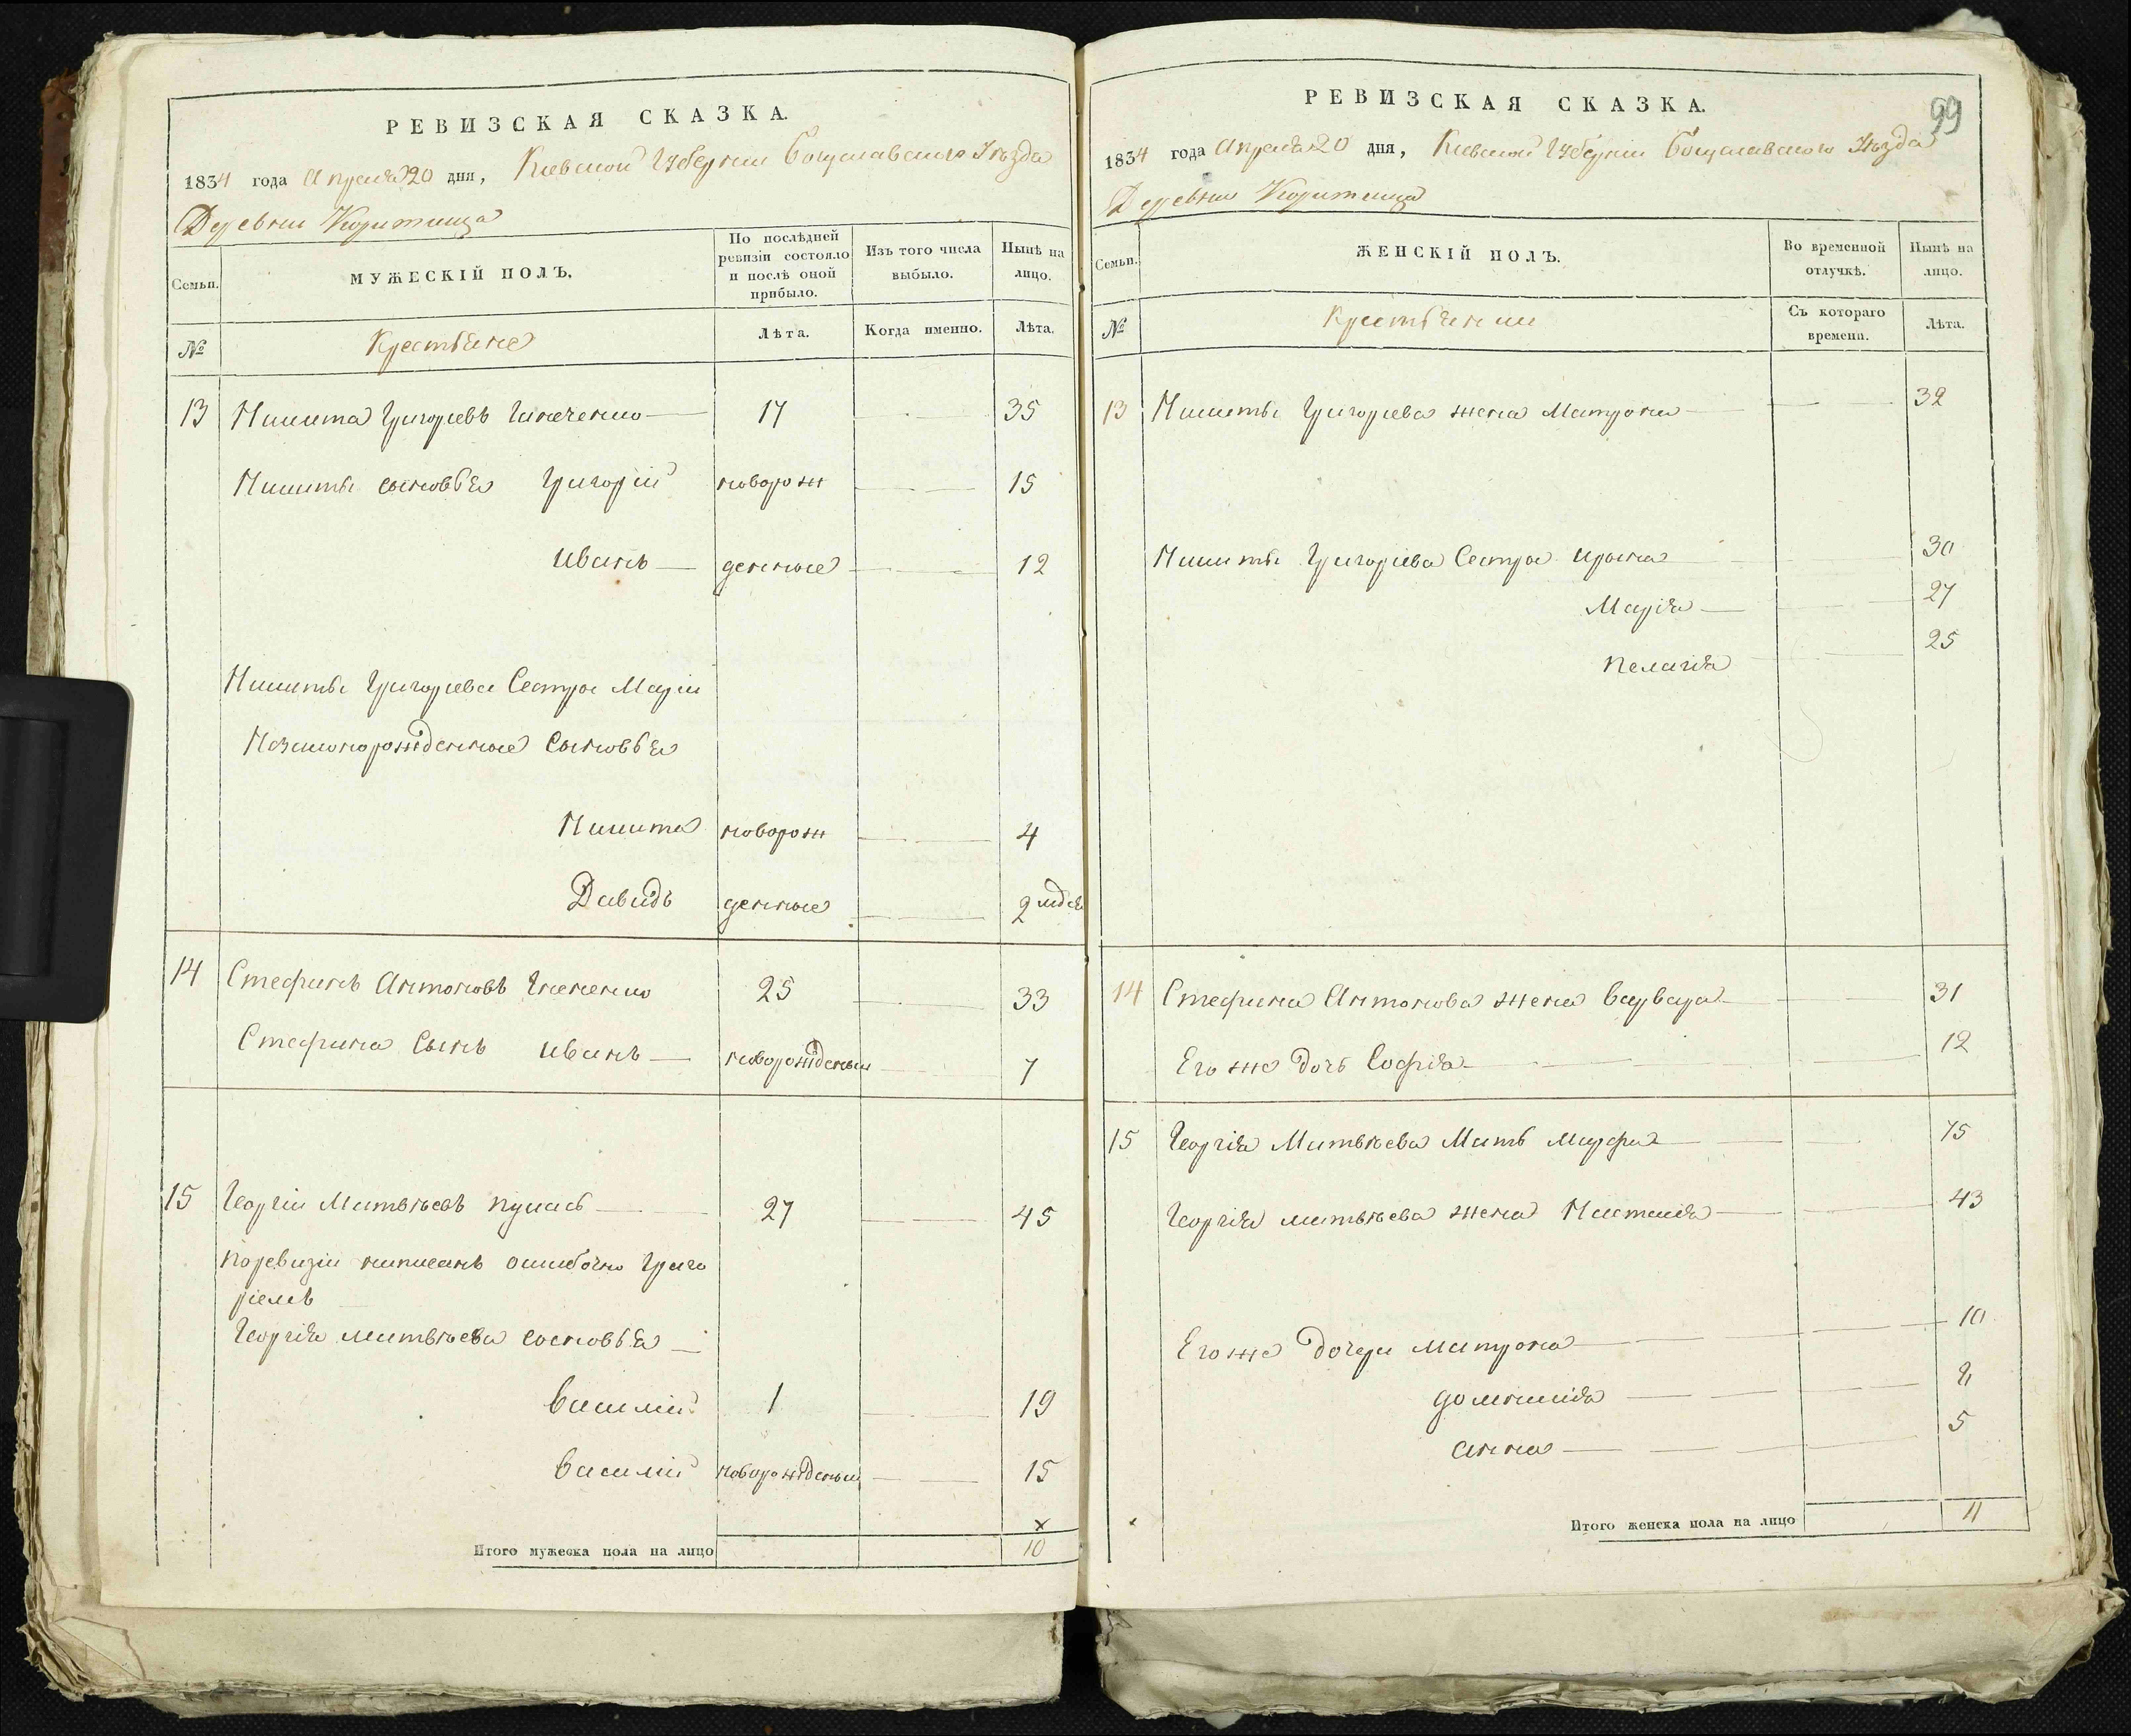 РЕВИЗСКАЯ СКАЗКА.
1834 года Апреля 20 дня, Киевской Губернии Богуславскаго Уезда
Деревни Коритища
Семьи.
МУЖЕСКІЙ ПОЛЪ.
По послѣдней ревизіи состояло и послѣ оной прибыло.
Изъ того числа выбыло.
Нынѣ на лицо.
№
Крестьяне
Лѣта.
Когда именно.
Лѣта.
13 Никита Григорьевъ 17 35
Никиты сыновья Григорій новорож 15
Иванъ денные 12
Никиты Григорьева Сестры Маріи
Незаконорожденные Сыновья
Никита новорож 4
Давидъ денные 2
14 Стефанъ Антоновъ 25 33
Стефана Сынъ Иванъ новорожденый 7
15 Георгій Матвѣевъ Кулакъ 27 45
по ревизіи написанъ ошибочно Григо
ріемъ
Георгія Матвѣева сыновья
Василій 1 19
Василій новорожденый 15
х
Итого мужеска пола на лицо 10
РЕВИЗСКАЯ СКАЗКА.
99
1834 года Апреля 20 дня, Киевской Губерніи Богуславскаго Уѣзда
Деревни Коритища
Семьи.
ЖЕНСКІЙ ПОЛЪ.
Во временной отлучкѣ.
Нынѣ на лицо.
№
Крестьянки
Съ котораго времени.
Лѣта.
13 Никиты Григорьева жена Матрона 32
Никиты Григорьева Сестры Ирына 30
Марія 27
Пелагія 25
14 Стефана Антонова жена Варвара 31
Его же дочь Софія 12
15 Георгія Матвѣева Мать Марфа 75
Георгія Матвѣева жена Настасія 43
Его же Дочери Матрона 10
Домникія
Анна 5
Итого женска пола на лицо 11